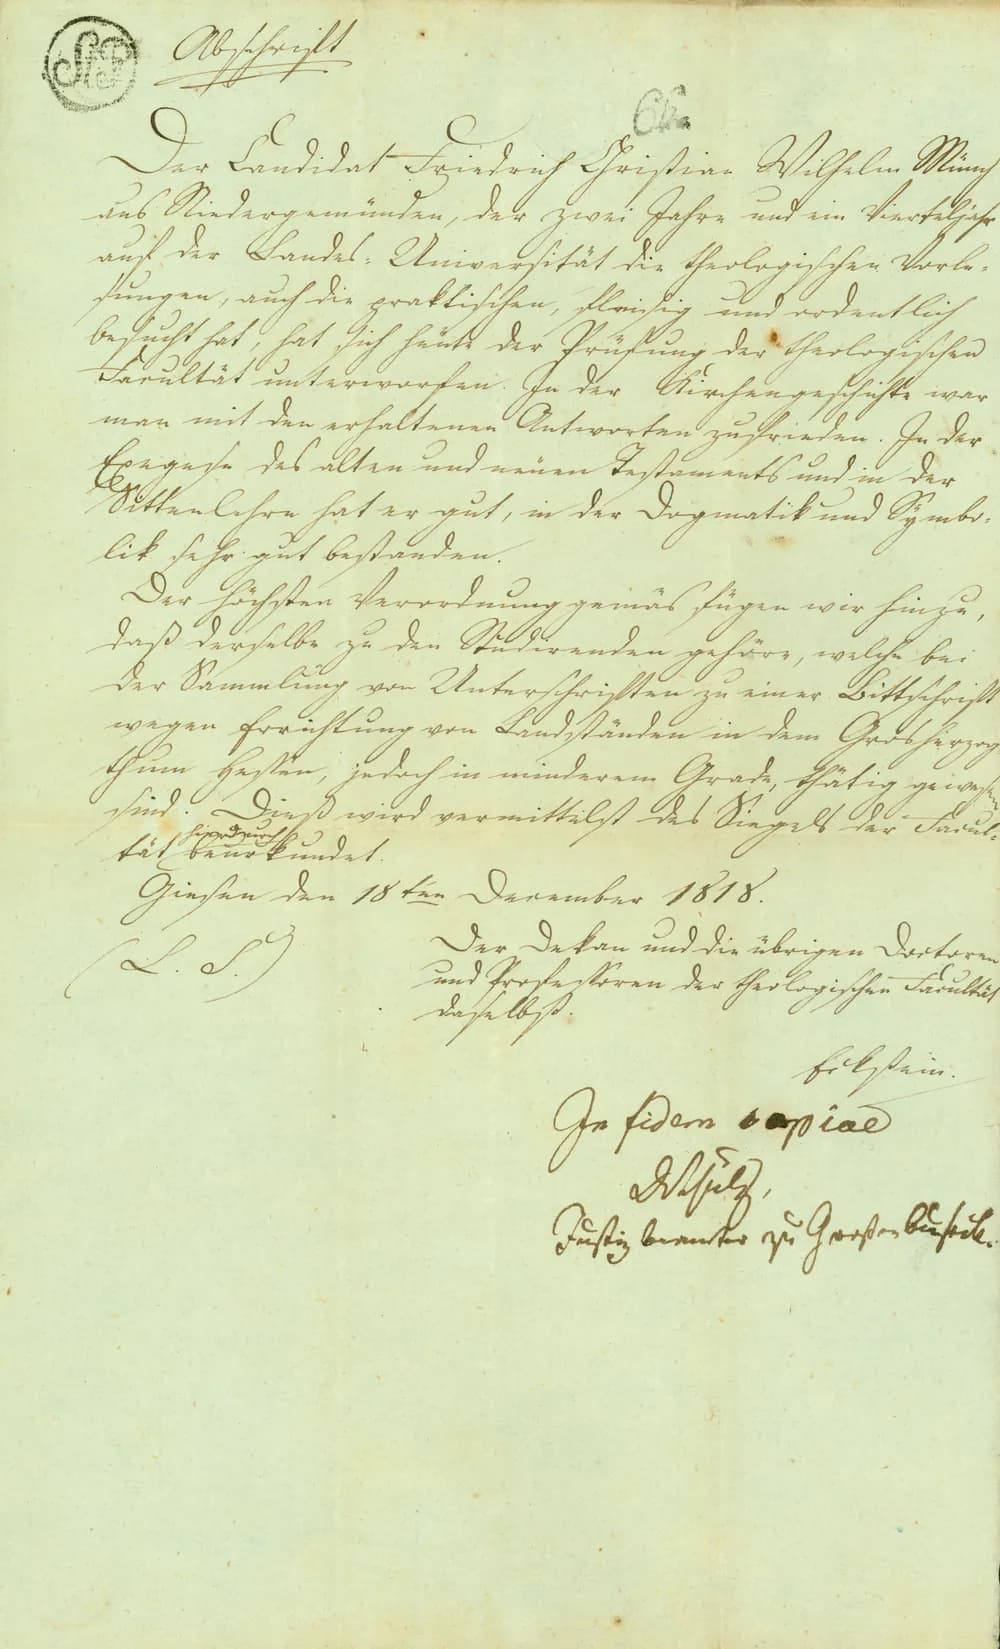 Abschrift
6 kr
Der Candidat Friedrich Christian Wilhelm Münch
aus Niedergemünden, der zwei Jahre und ein Vierteljahr
auf der Landes-Universität die theologischen Vorle-
sungen, auch die praktischen, fleisig und ordentlich
besucht hat, hat sich heute der Prüfung der theologischen
Facultät unterworfen. In der Kirchengeschichte war
man mit den erhaltenen Antworten zufrieden. In der
Exegese des alten und neuen Testaments und in der
Sittenlehre hat er gut, in der Dogmatik und Symbo-
lik sehr gut bestanden.
Der höchsten Verordnung gemäs fügen wir hinzu,
daß derselbe zu den Studirenden gehöre, welche bei
der Sammlung von Unterschriften zu einer Bittschrift
wegen Errichtung von Landständen in dem Grosherzog
thum Hessen, jedoch in minderem Grade, thätig gewesen
sind. Dieß wird vermittelst des Siegels der Facul-
hierdurch
tät beurkundet.
Giesen den 18ten December 1818.
(L. S.)
Der Dekan und die übrigen Doctoren
und Professoren der theologischen Facultät
daselbst.
Eckstein.
In fidem copiae
Justizbeamter zu Grossenbuseck.